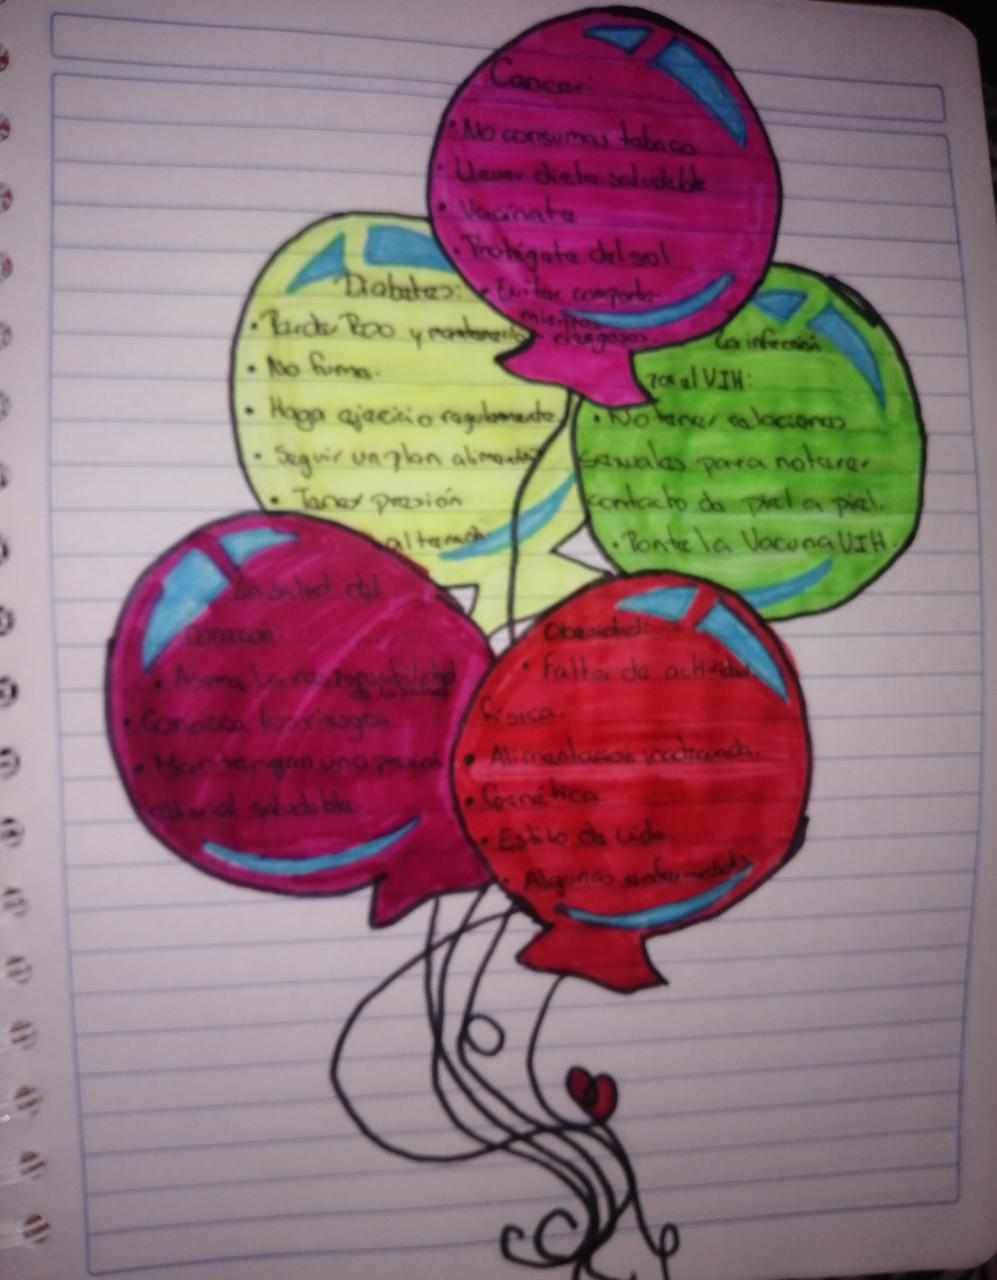 Cancer:
• No consumas tabaco
• Llevar dieta saludable
• Vacínate
• Protégete del sol
• Evitar comporta-
mientos
riesgosos.
Diabetes:
• Perder Peso y
• No fuma.
• Haga ejercicio regularmente
• Seguir un plan
• Tener presión
La infección
por el VIH:
• No tener relaciones
sexuales para no tener
contacto de piel a piel.
• Ponte la Vacuna VIH.
La salud del
corazón:
• Asuma la responsabilidad
• Conozca los riesgos
• Mantengan una
saludable.
Obesidad:
• Falta de actividad
física.
• Alimentación inadecuada.
• Genética
• Estilo de vida.
• Algunas enfermedades